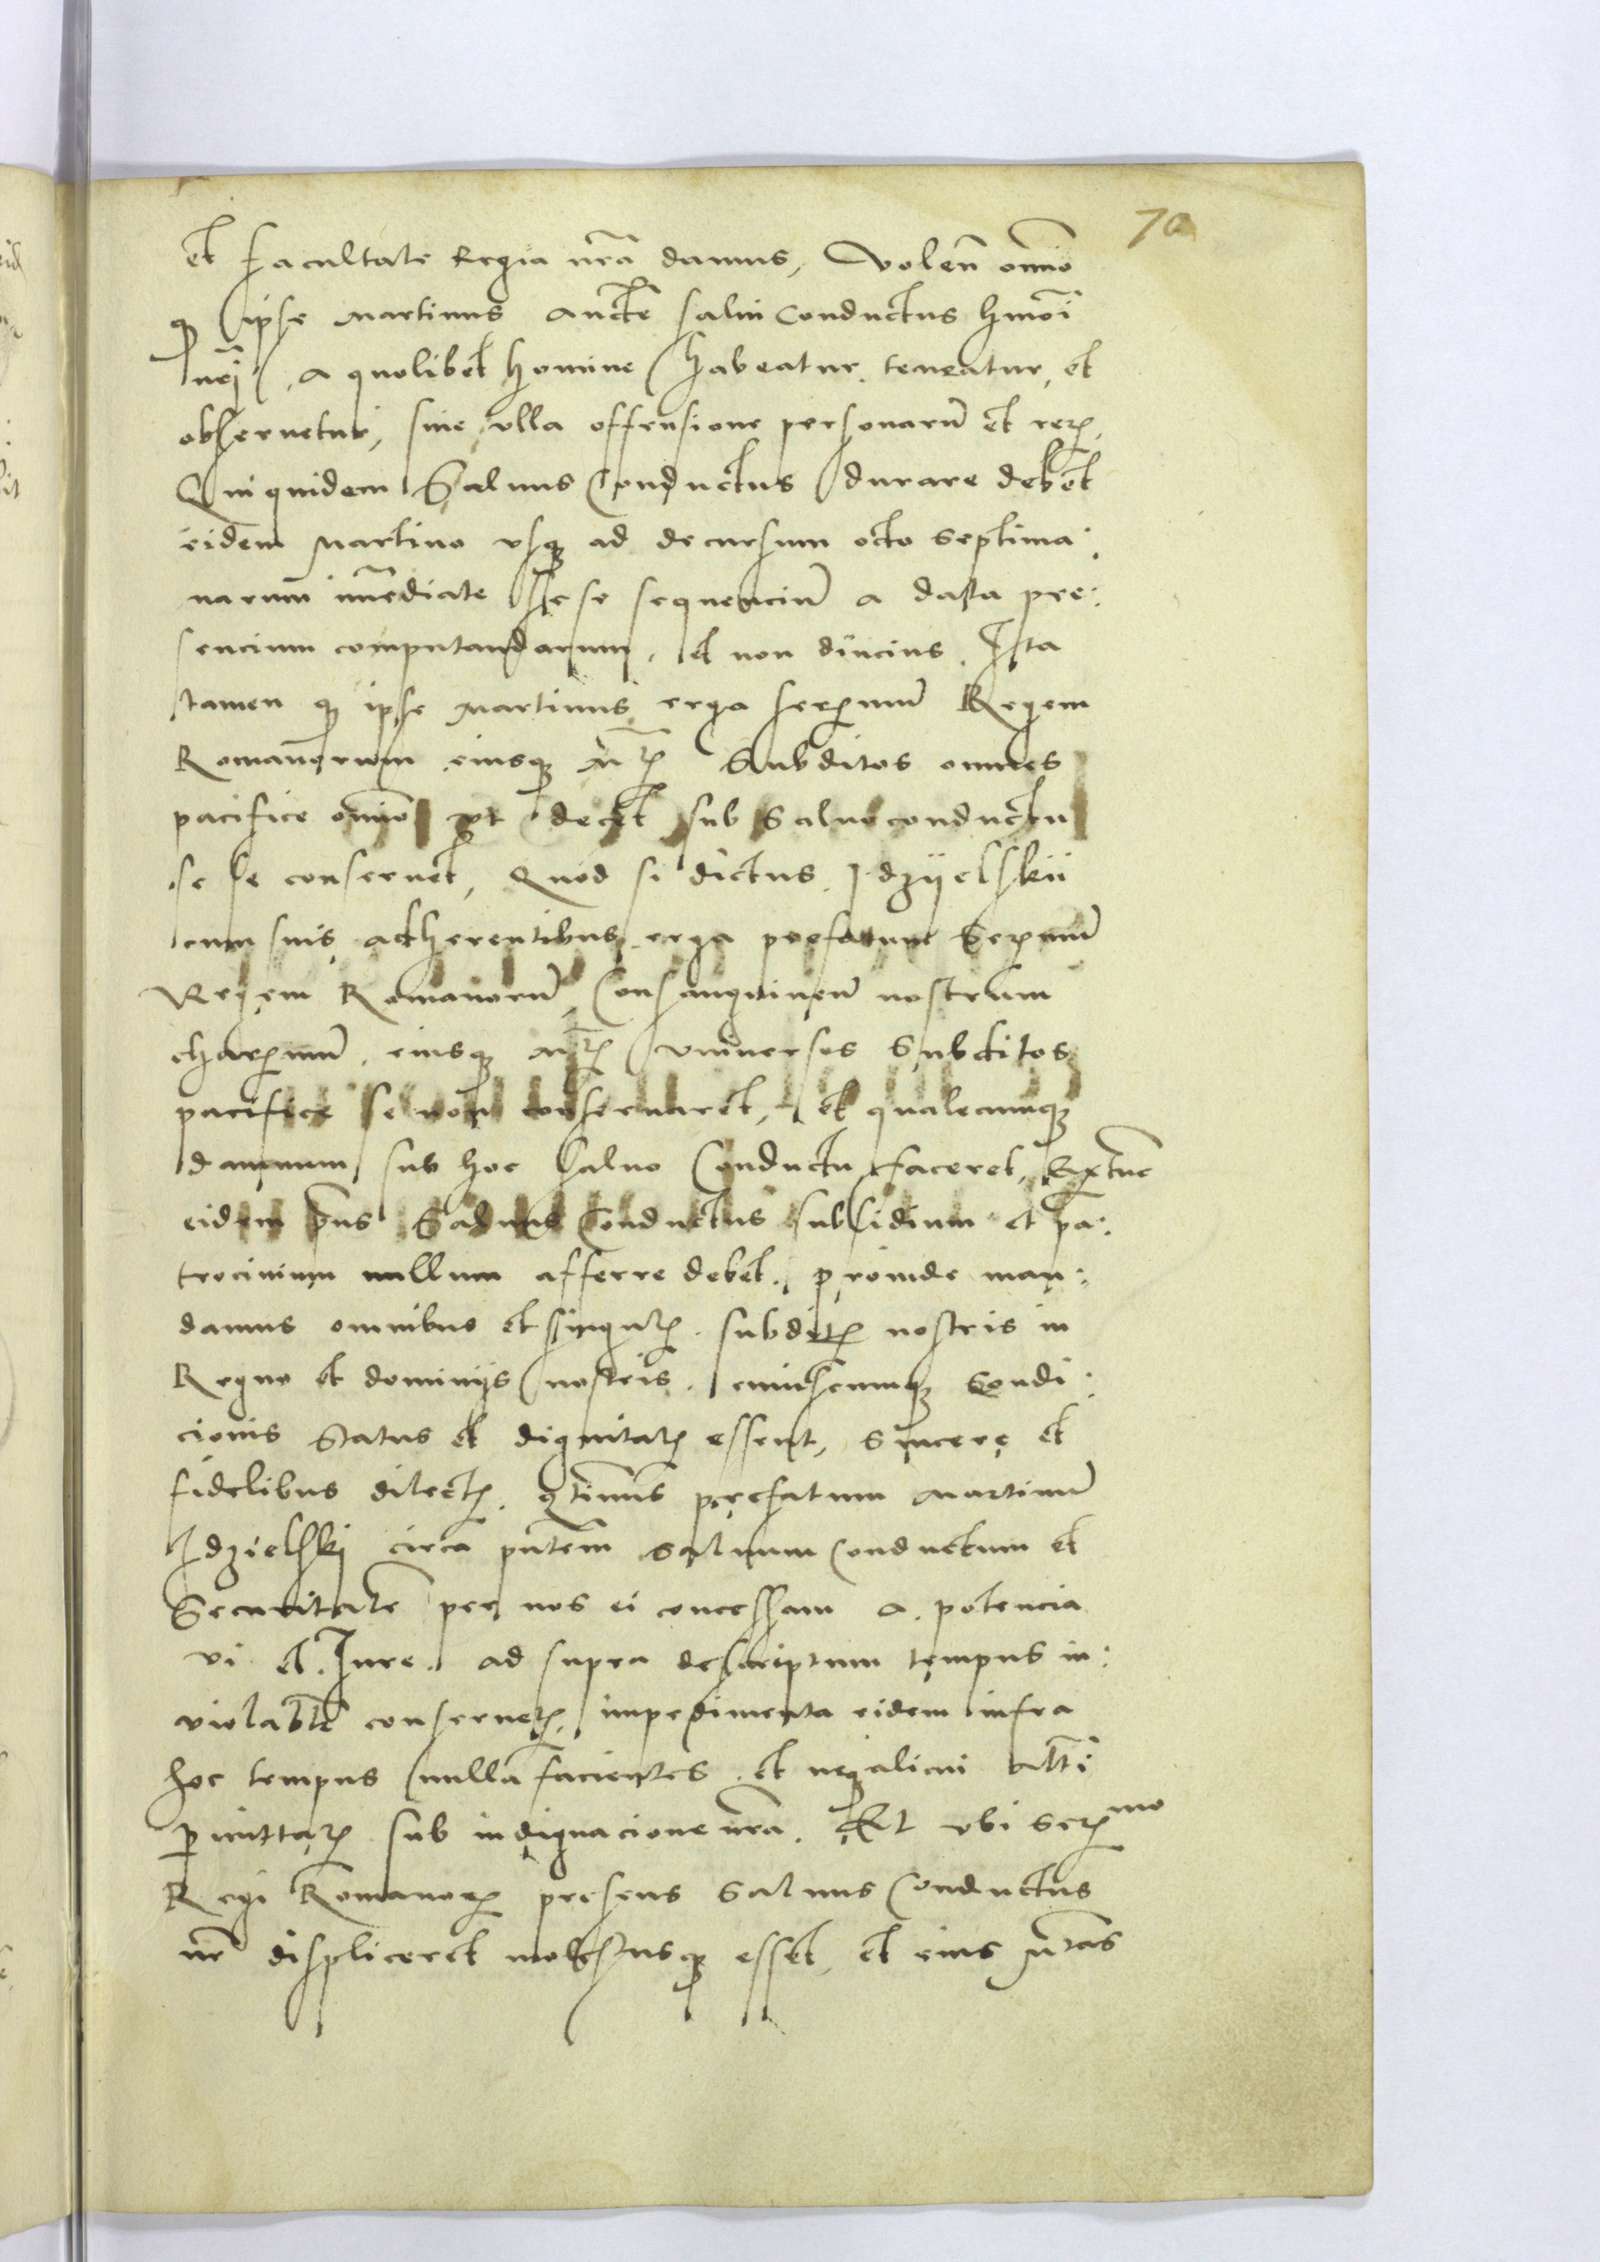 70
et facultate Regia nrã damus, Volen̄ om̄io
q̨ ipse Martinus aucte salui conductus hmoi
nr̄j, a quolibet homine habeatur, teneatur, et
obseruetur, sine vlla offensione personarū et rerꝝ,
Qui quidem Saluus Conductus durare debet
eidem Martino vsqꝫ ad decursum octo septima:
narum im̄ediate sese sequenciū a data pre:
sencium computandarum, et non diucius, Ita
tamen q̨ ipse Martinus erga serꝫmū Regem
Romanorum eiusqꝫ Mtꝫ Subditos omnes
pacifice om̄io vt decet sub Saluoconductu
se se conseruet, Quod si dictus Idzyelskii
cum suis adherentibus erga prefatum Serꝫmū
Regem Romanorū, Consanguineū nostrum
charꝫmū, eiusqꝫ Mtꝫ vniuersos Subditos
pacifice se non conseruaret, et qualecunqꝫ
damnum sub hoc Saluo Conductu faceret, Extunc
eidem p̄ns Saluus Conductus subsidium et pa:
trocinium nullum afferre debet, proinde man:
damus omnibus et singulꝫ subditꝫ nostris in
Regno et dominijs nostris, cuiuscunqꝫ Condi:
cionis Status et dignitatꝫ essent, Sincere et
fidelibus dilectꝫ, qtinus prefatum Martinū
Idzielskj circa pn̄tem saluum Conductum et
Securitatē per nos ei concessam a potencia
vi et Iure, ad supra descriptum tempus in:
violablr conseruetꝫ, impedimenta eidem infra
hoc tempus nulla facientes, et neq̨ alicui altti
ꝑmittatꝫ sub indignacione nrã, Et vbi Serꝫmo
Regi Romanorꝫ presens Saluus Conductus
nr̄ displiceret molestusqꝫ esset, et eius Mtas